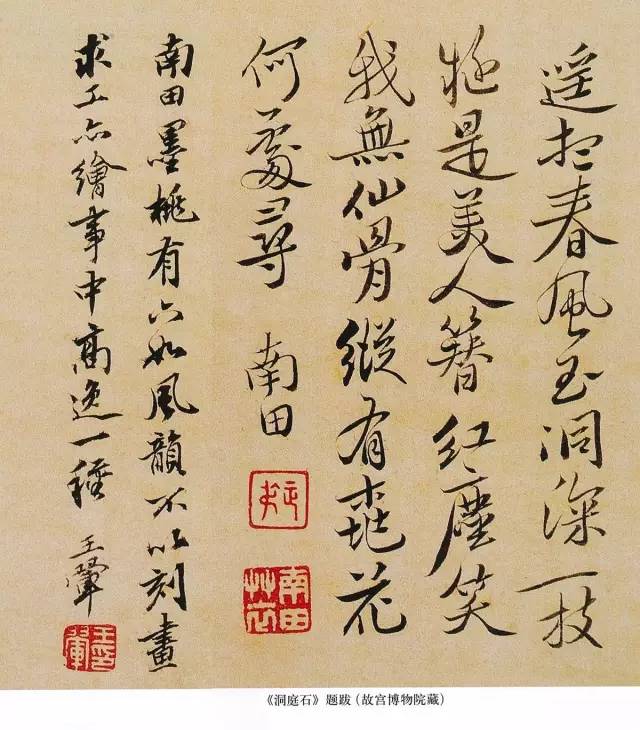 遥春風玉洞深一枝
是美人簪红塵笑
我無仙骨縱有桃花
何處尋 南田
正叔
南田草衣
南田墨桃有六如風韻不以刻畫
求工亦繪事中高逸一種 王翬
《洞庭石》题跋（故宫博物院藏）